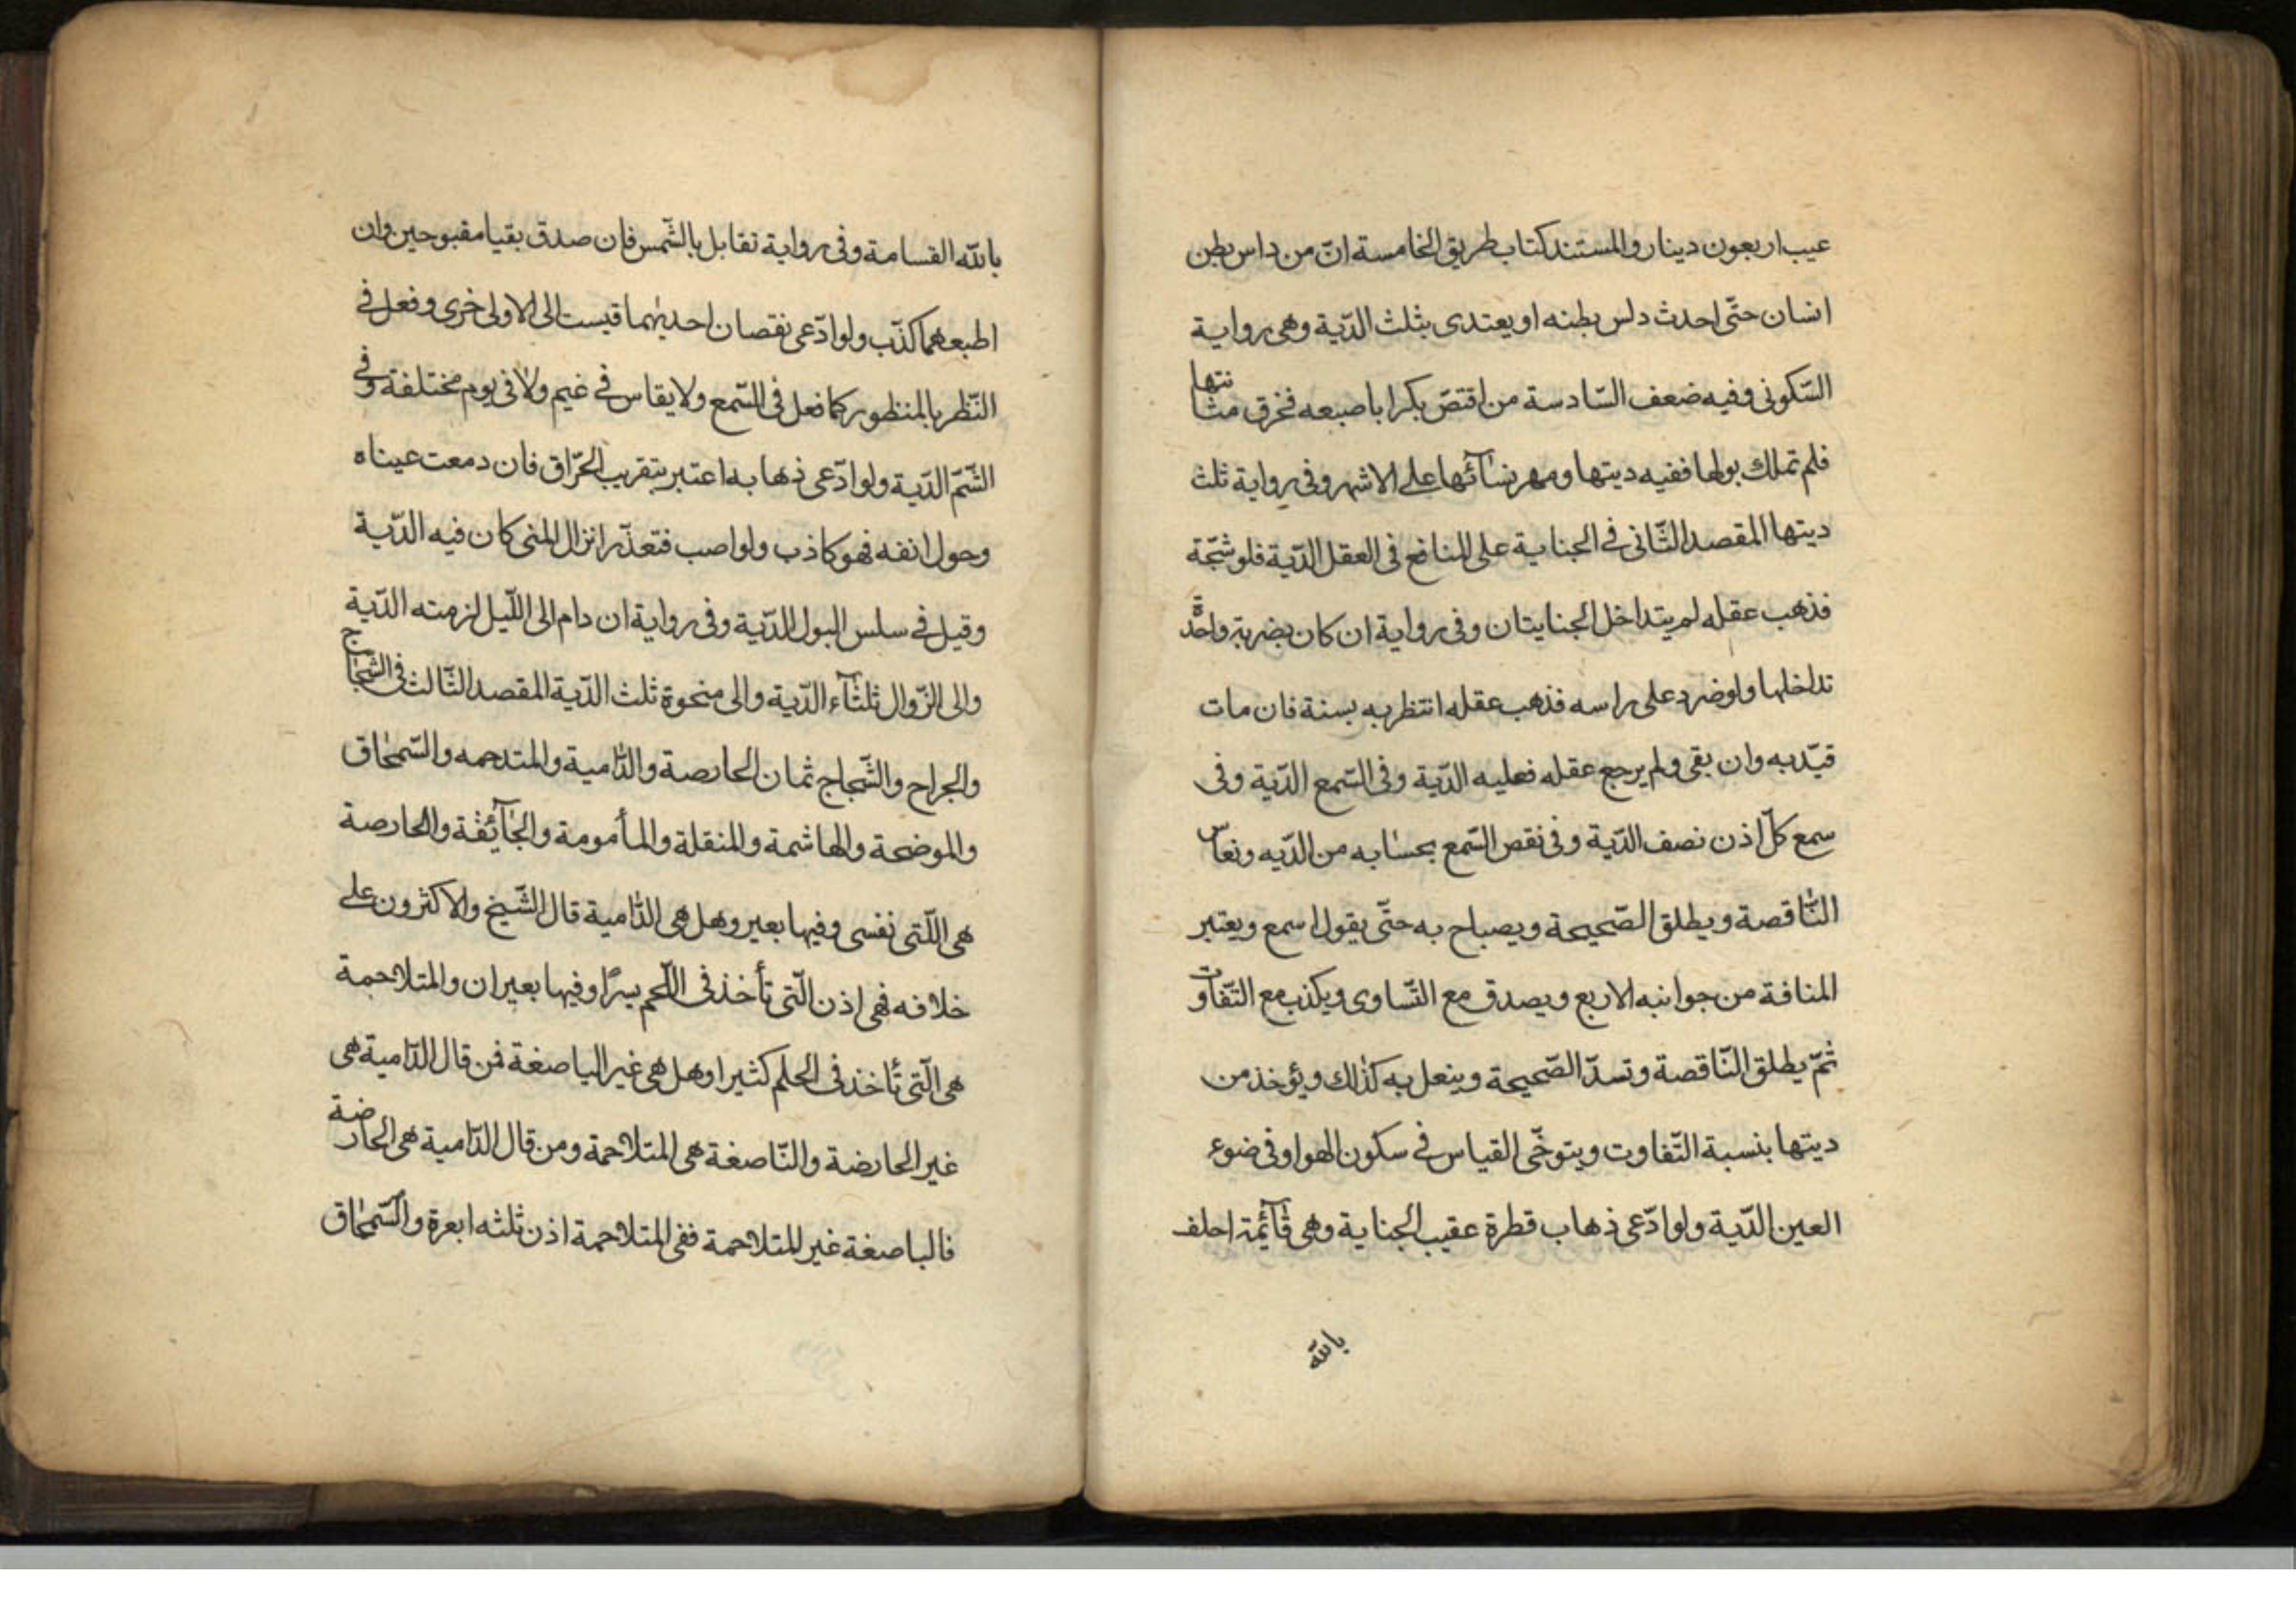 عيب اربعون دينار والمستند كتاب طريق الخامسة انّ من داس بطن
انسان حتّى احدث دلس بطنه او يعتدى بثلث الدّية وهى رواية
السّكونى وفيه ضعف السّادسة من اقتضّ بكرا باصبعه فخرق مثانتها
فلم تملك بولها ففيه ديتها ومهر نسآئها على الاشهر وفى رواية ثلث
ديتها المقصد الثّانى فى الجناية على المنافع فى العقل الدّية فلو شجّة
فذهب عقله لم يتداخل الجنايتان وفى رواية ان كان بضربة واحدة
تداخلها ولو ضرد على راسه فذهب عقله انتظر به بسنة فان مات
قيّد به وان بقى ولم يرجع عقله فعليه الدّية وفى السّمع الدّية وفى
سمع كلّ اذن نصف الدّية وفى نقص السّمع بحسابه من الدّيه ونعاس
النّاقصة ويطلق الصّحيحة ويصباح به حتّى يقول اسمع ويعتبر
المنافة من جوانبه الاربع ويصدق مع التّساوى ويكذب مع التّفاوت
ثمّ يطلق النّاقصة وتسدّ الصّحيحة وينعل به كذلك ويؤخذ من
ديتها بنسبة التّفاوت ويتوخّى القياس فى سكون الهوا وفى ضوء
العين الدّية ولو ادّعى ذهاب قطرة عقيب الجناية وهى قآئمة احلف
بالله
بالله القسامة وفى رواية تقابل بالشّمس فان صدق بقيا مقبوحين وان
اطبعهما كذّب ولو ادّعى نقصان احديهما قيست الى الاولى اخرى وفعل فى
النّظر بالمنظور كما فعل فى السّمع ولا يقاس فى غيم ولا فى يوم مختلفة وفى
الشّمّ الدّية ولو ادّعى ذهابه اعتبر بتقريب الحرّاق فان دمعت عيناه
وحول انفه فهو كاذب ولو اصب فتعذّر انزال المنى كان فيه الدّية
وقيل فى سلس البول الدّية وفى رواية ان دام الى اللّيل لزمته الدّية
والى الزّوال ثلثآء الدّية والى منحوة ثلث الدّية المقصد الثّالث فى الشّجاج
والجراح والشّجاج ثمان الحارصة والدّامية والمتدحمه والسّمحاق
والموضحة والهاشمة والمنقلة والمأمومة والجآئفة والحارصة
هى اللّتى نفسى وفيها بعير وهل هى الدّامية قال الشّيخ والاكثرون على
خلافه فهى اذن الّتى تأخذ فى اللّحم يسرًا وفيها بعيران والمتلاحمة
هى الّتى تأخذ فى الحلم كثيرا وهل هى غير الياصغة فمن قال الدّامية هى
غير الحارضة والنّاصغة هى المتلاحمة ومن قال الدّامية هى الحارضة
فالباصغة غير المتلاحمة ففى المتلاحمة اذن ثلثه ابعرة والسّمحاق